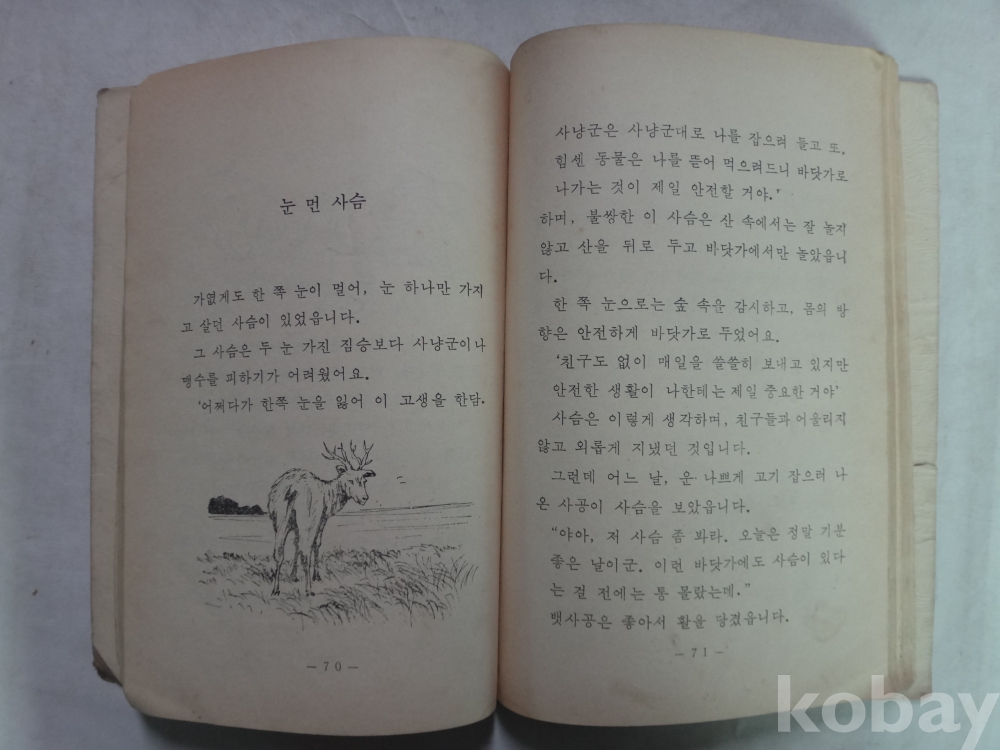 눈 먼 사슴
가엾게도 한 쪽 눈이 멀어, 눈 하나만 가지
고 살던 사슴이 있었읍니다.
그 사슴은 두 눈 가진 짐승보다 사냥군이나
맹수를 피하기가 어려웠어요.
'어쩌다가 한쪽 눈을 잃어 이 고생을 한담.
- 70 -
사냥군은 사냥군대로 나를 잡으려 들고 또.
힘센 동물은 나를 뜯어 먹으려드니 바닷가로
나가는 것이 제일 안전할 거야.'
하며, 불쌍한 이 사슴은 산 속에서는 잘 놀지
않고 산을 뒤로 두고 바닷가에서만 놀았읍니
다.
한 쪽 눈으로는 숲 속을 감시하고, 몸의 방
향은 안전하게 바닷가로 두었어요.
'친구도 없이 매일을 쓸쓸히 보내고 있지만
안전한 생활이 나한테는 제일 중요한 거야'
사슴은 이렇게 생각하며, 친구들과 어울리지
않고 외롭게 지냈던 것입니다.
그런데 어느 날, 운 나쁘게 고기 잡으러 나
온 사공이 사슴을 보았읍니다.
"야아, 저 사슴 좀 봐라. 오늘은 정말 기분
좋은 날이군. 이런 바닷가에도 사슴이 있다
는 걸 전에는 통 몰랐는데."
뱃사공은 좋아서 활을 당겼읍니다.
- 71 -
kobay